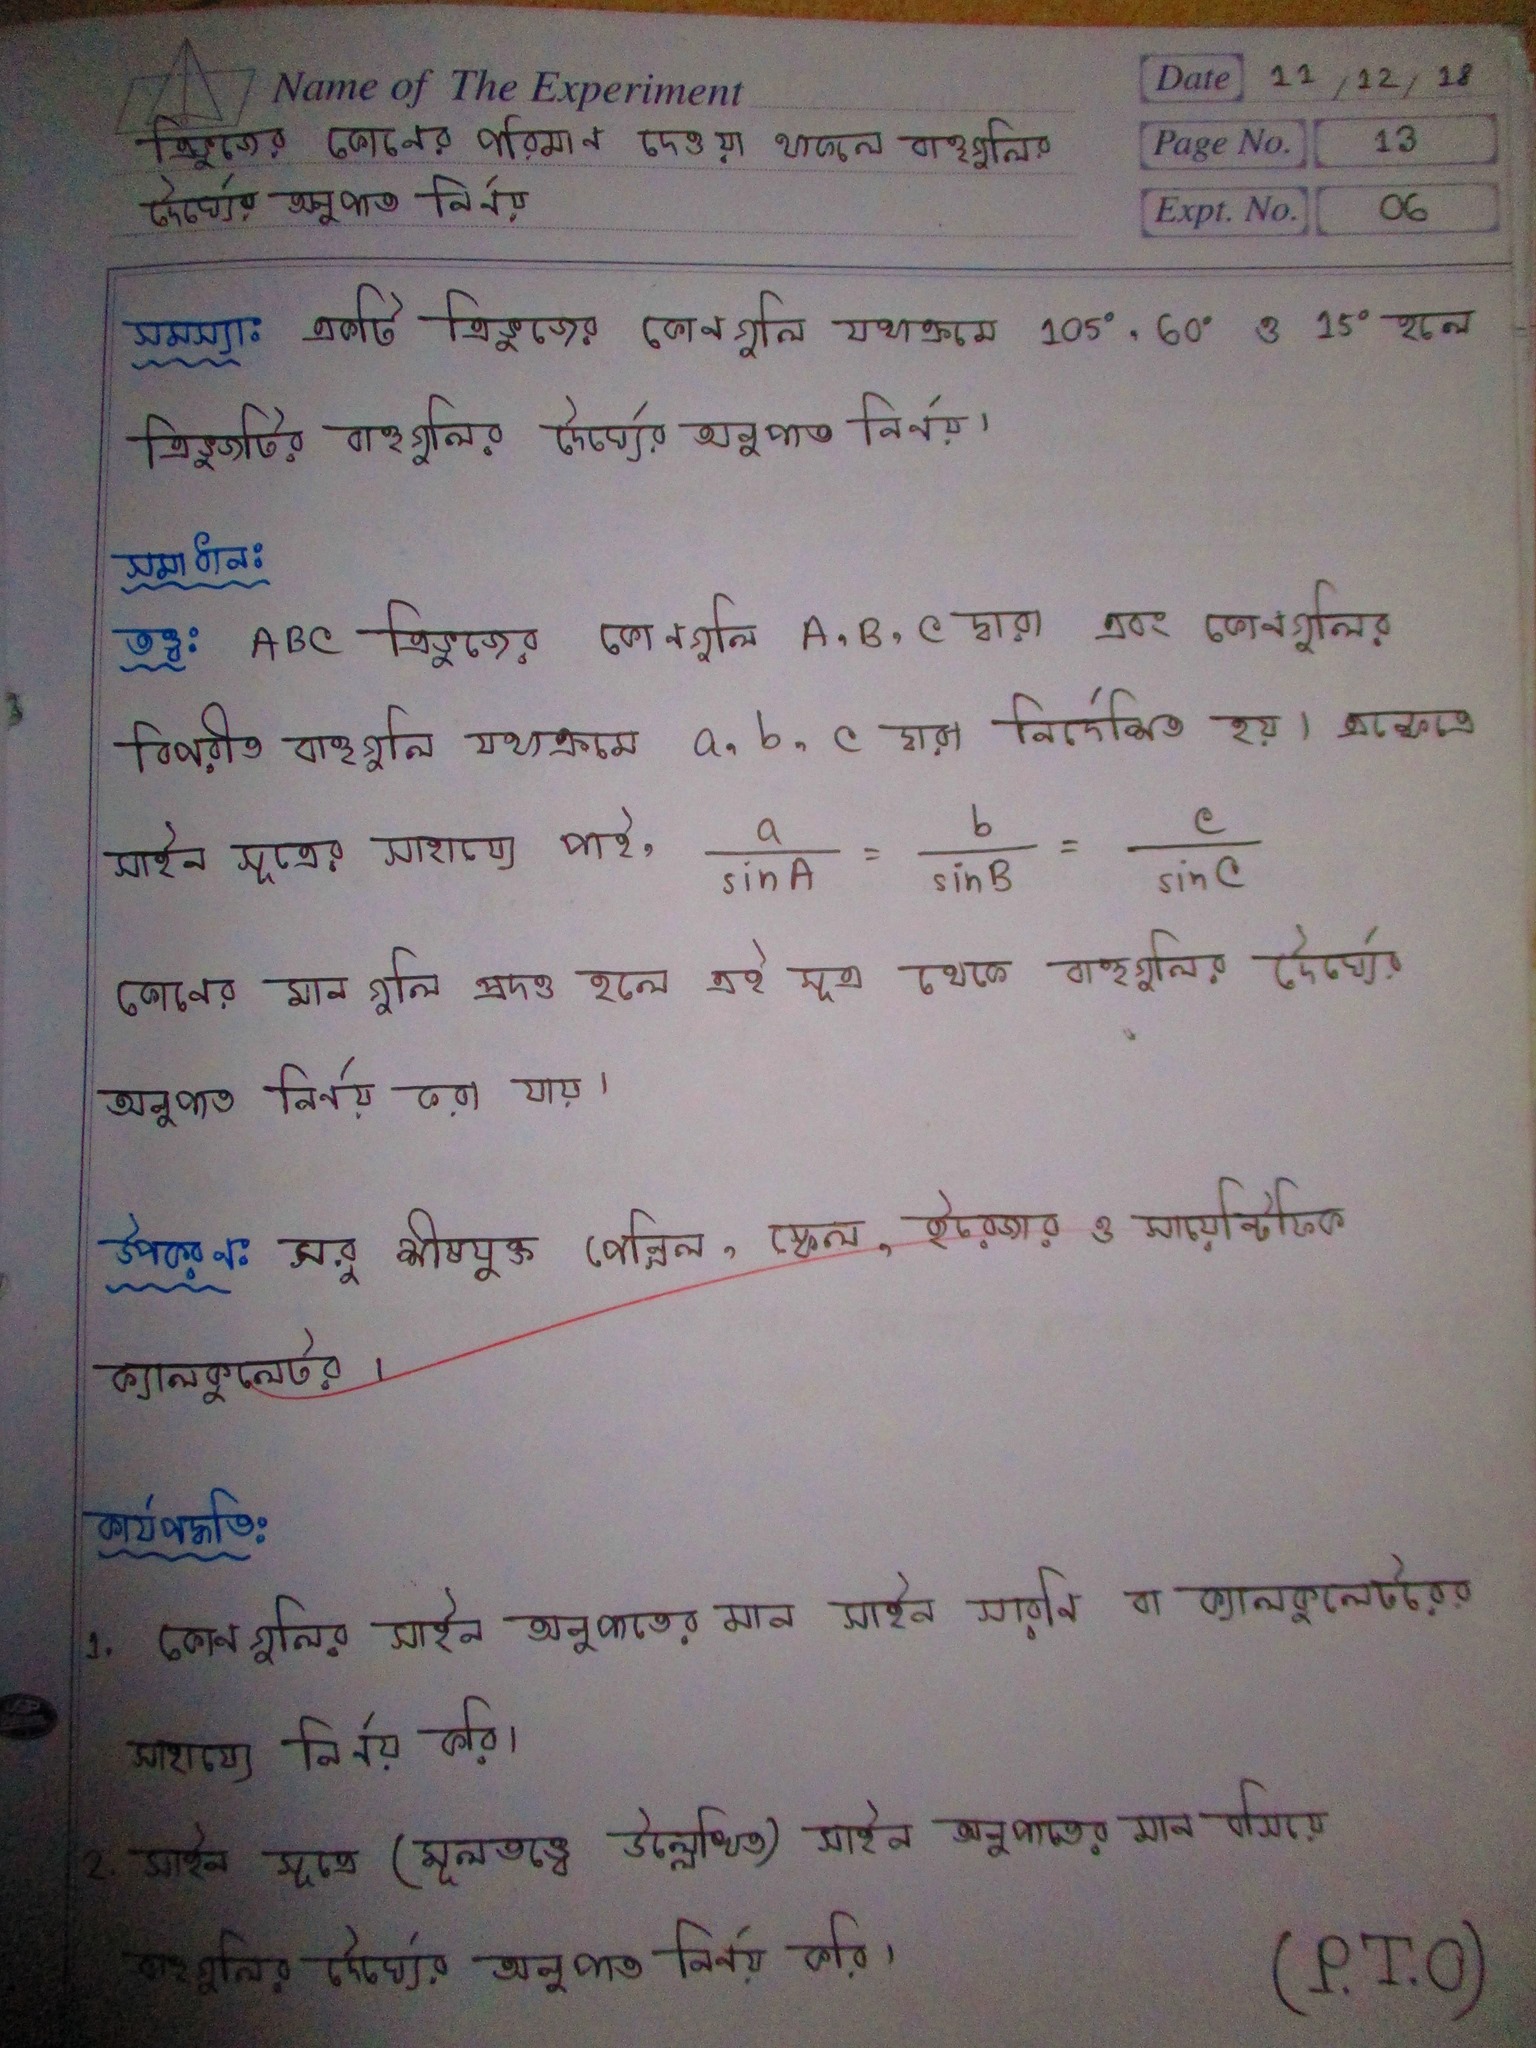 Name of The Experiment
Date 11/12/18
ত্রিভুজের কোনের পরিমান দেওয়া থাকলে বাহুগুলির
Page No. 13
দৈর্ঘ্যের অনুপাত নির্ণয়
Expt. No. 06
সমস্যাঃ একটি ত্রিভুজের কোনগুলি যথাক্রমে 105°, 60° ও 15° হলে
ত্রিভুজটির বাহুগুলির দৈর্ঘ্যের অনুপাত নির্নয়।
সমাধানঃ
তত্ত্বঃ ABC ত্রিভুজের কোনগুলি A, B, C দ্বারা এবং কোনগুলির
বিপরীত বাহুগুলি যথাক্রমে a, b, c দ্বারা নির্দেশিত হয়। এক্ষেত্রে
সাইন সূত্রের সাহায্যে পাই, a/sinA = b/sinB = c/sinC
কোনের মান গুলি প্রদত্ত হলে এই সূত্র থেকে বাহুগুলির দৈর্ঘ্যের
অনুপাত নির্নয় করা যায়।
উপকরনঃ সরু শীষযুক্ত পেন্সিল, স্কেল, ইরেজার ও সায়েন্টিফিক
ক্যালকুলেটর।
কার্যপদ্ধতিঃ
1. কোনগুলির সাইন অনুপাতের মান সাইন সারনি বা ক্যালকুলেটরের
সাহায্যে নির্নয় করি।
2. সাইন সূত্রে (মূলতত্ত্বে উল্লেখিত) সাইন অনুপাতের মান বসিয়ে
বাহুগুলির দৈর্ঘ্যের অনুপাত নির্নয় করি।
(P.T.O)